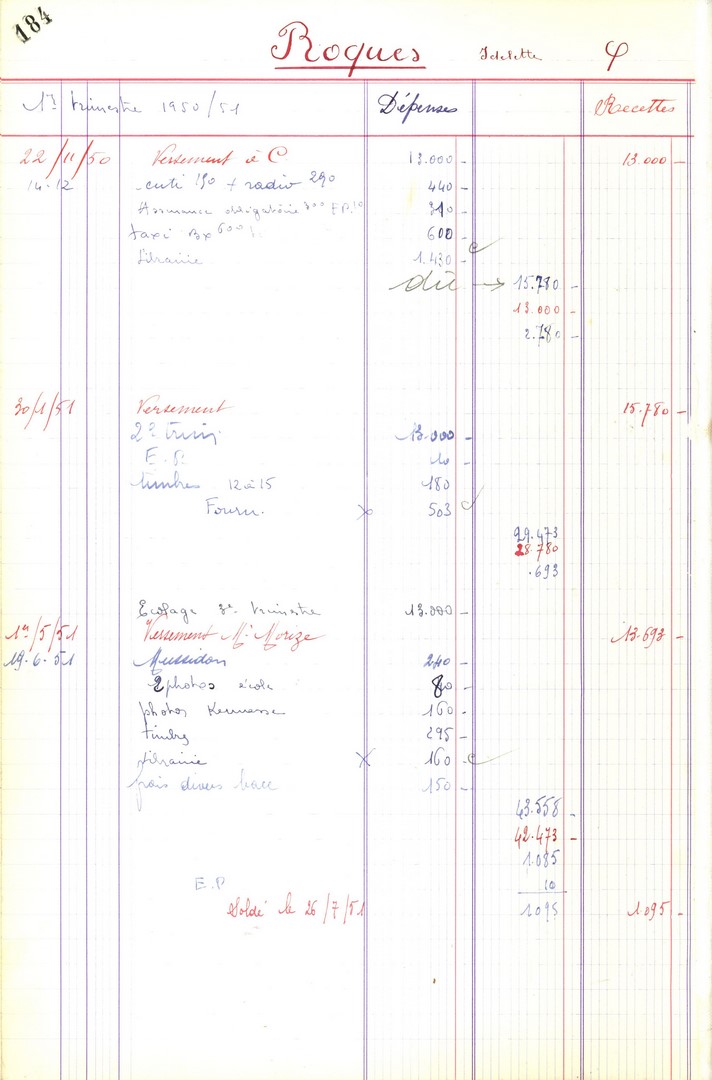 184
Roques Idelette φ
1er trimestre 1950/51 Dépenses Recettes
22/11/50 Versement à C 13.000 - 13.000 -
14-12 cuti 150 + radio 290 440 -
Assurance obligatoire 300 E.P. 10 310 -
taxi Bx 600 600 -
Librairie 1.430 -
dû → 15.780 -
13.000 -
2.780 -
30/1/51 Versement 15.780 -
2e trim. 13.000 -
E.P. 10 -
timbres 12 à 15 180
Fourn. x 503
29.473
28.780
.693
Ecolage 3e trimestre 13.000 -
1er/5/51 Versement Mr Morize 13.693 -
19.6.51 Mussidan 240 -
2 photos école 80 -
photos Kermesse 160 -
timbres 295 -
Librairie x 160 -
frais divers bacc 150 -
43.558
42.473 -
1.085
E.P 10
Soldé le 26/7/51 1095 1.095 -